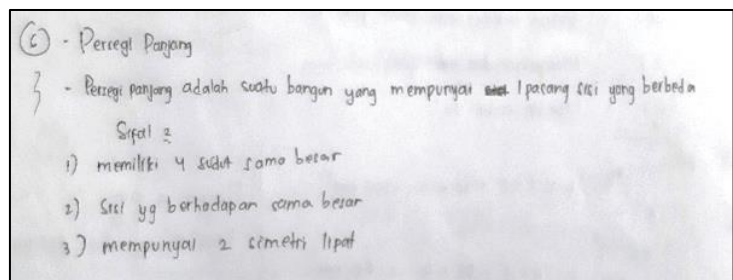 ⑥ - Persegi Panjang
3 - Persegi panjang adalah suatu bangun yang mempunyai 1 pasang sisi yang berbeda
Sifat 2
1) memiliki 4 sudut sama besar
2) Sisi yg berhadapan sama besar
3) mempunyai 2 simetri lipat